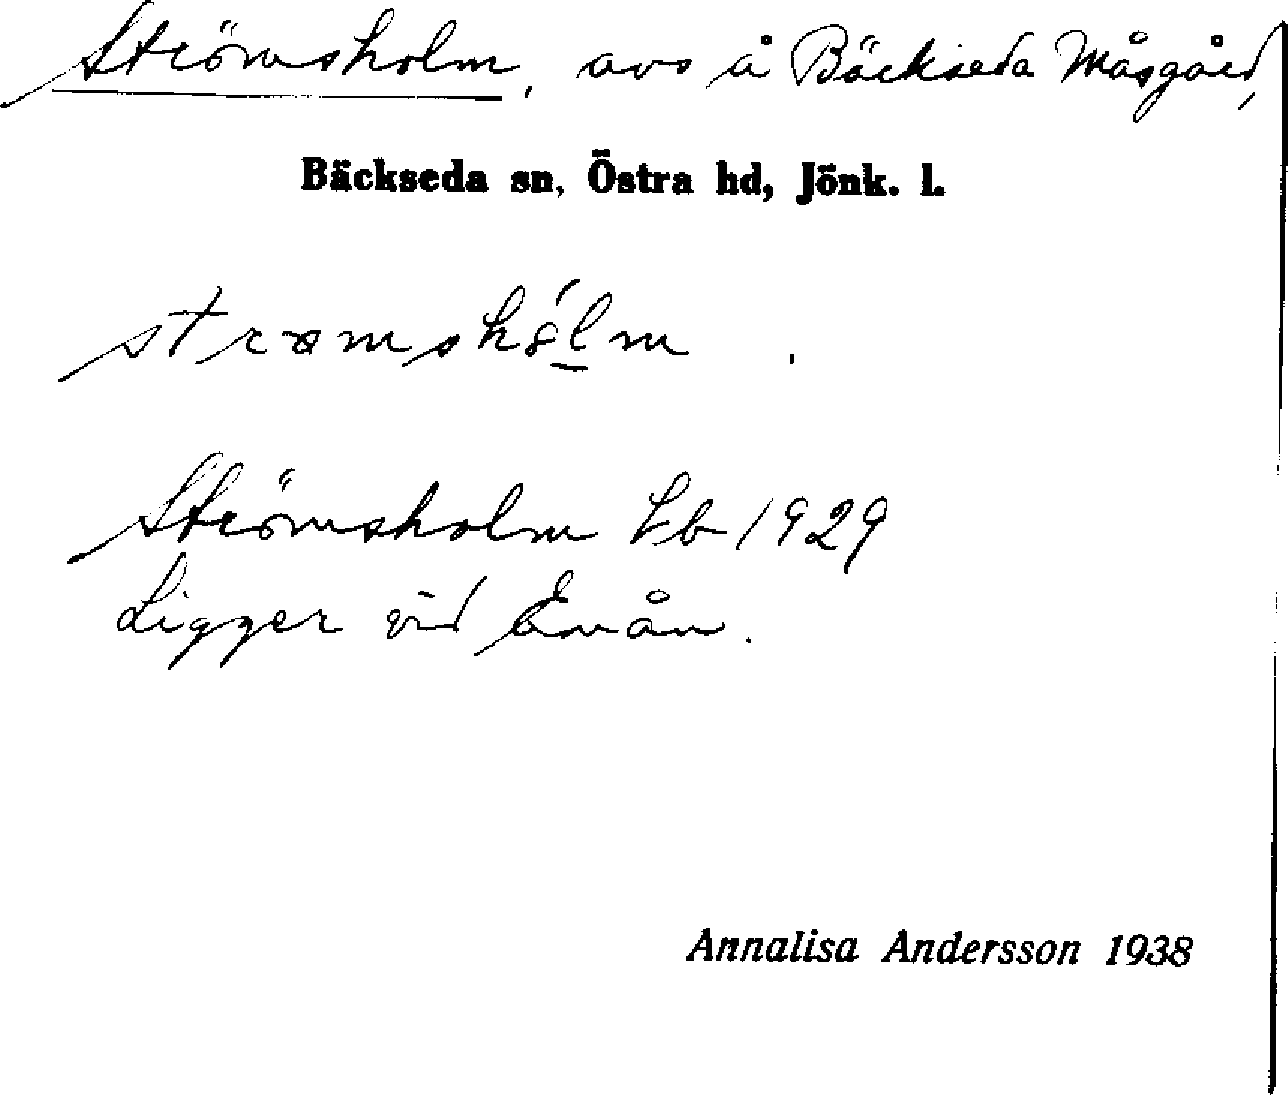 Strömsholm, avs å Bäckseda Måsgård,
Bäckseda sn, Östra hd, Jönk. l.
Strömsholm kb 1929
Ligger vid Emån.
Annalisa Andersson 1938